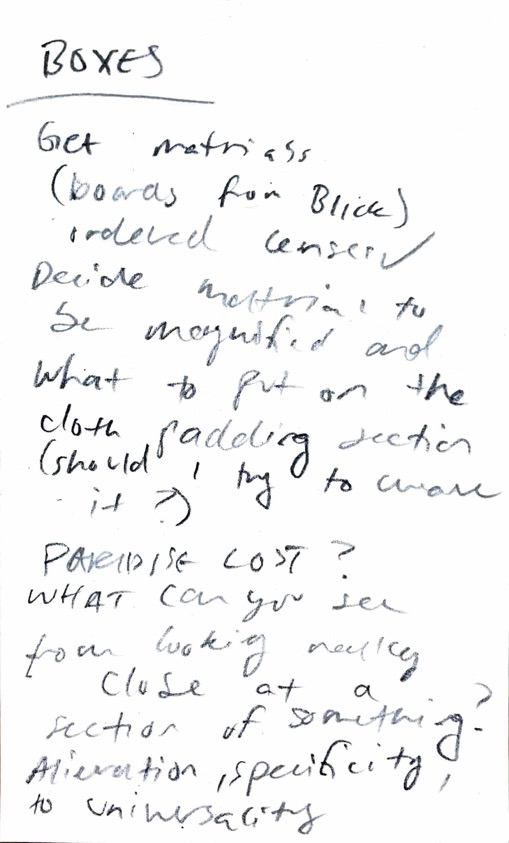 BOXES
Get matrials
(boards from Blick)
ordered lenses ✓
Decide matrial to
be magnified and
What to put on the
cloth padding section
(should I try to
it ?)
PARIDISE LOST ?
WHAT can you see
from looking really
close at a
section of something?
Alieration, specificity,
to universality